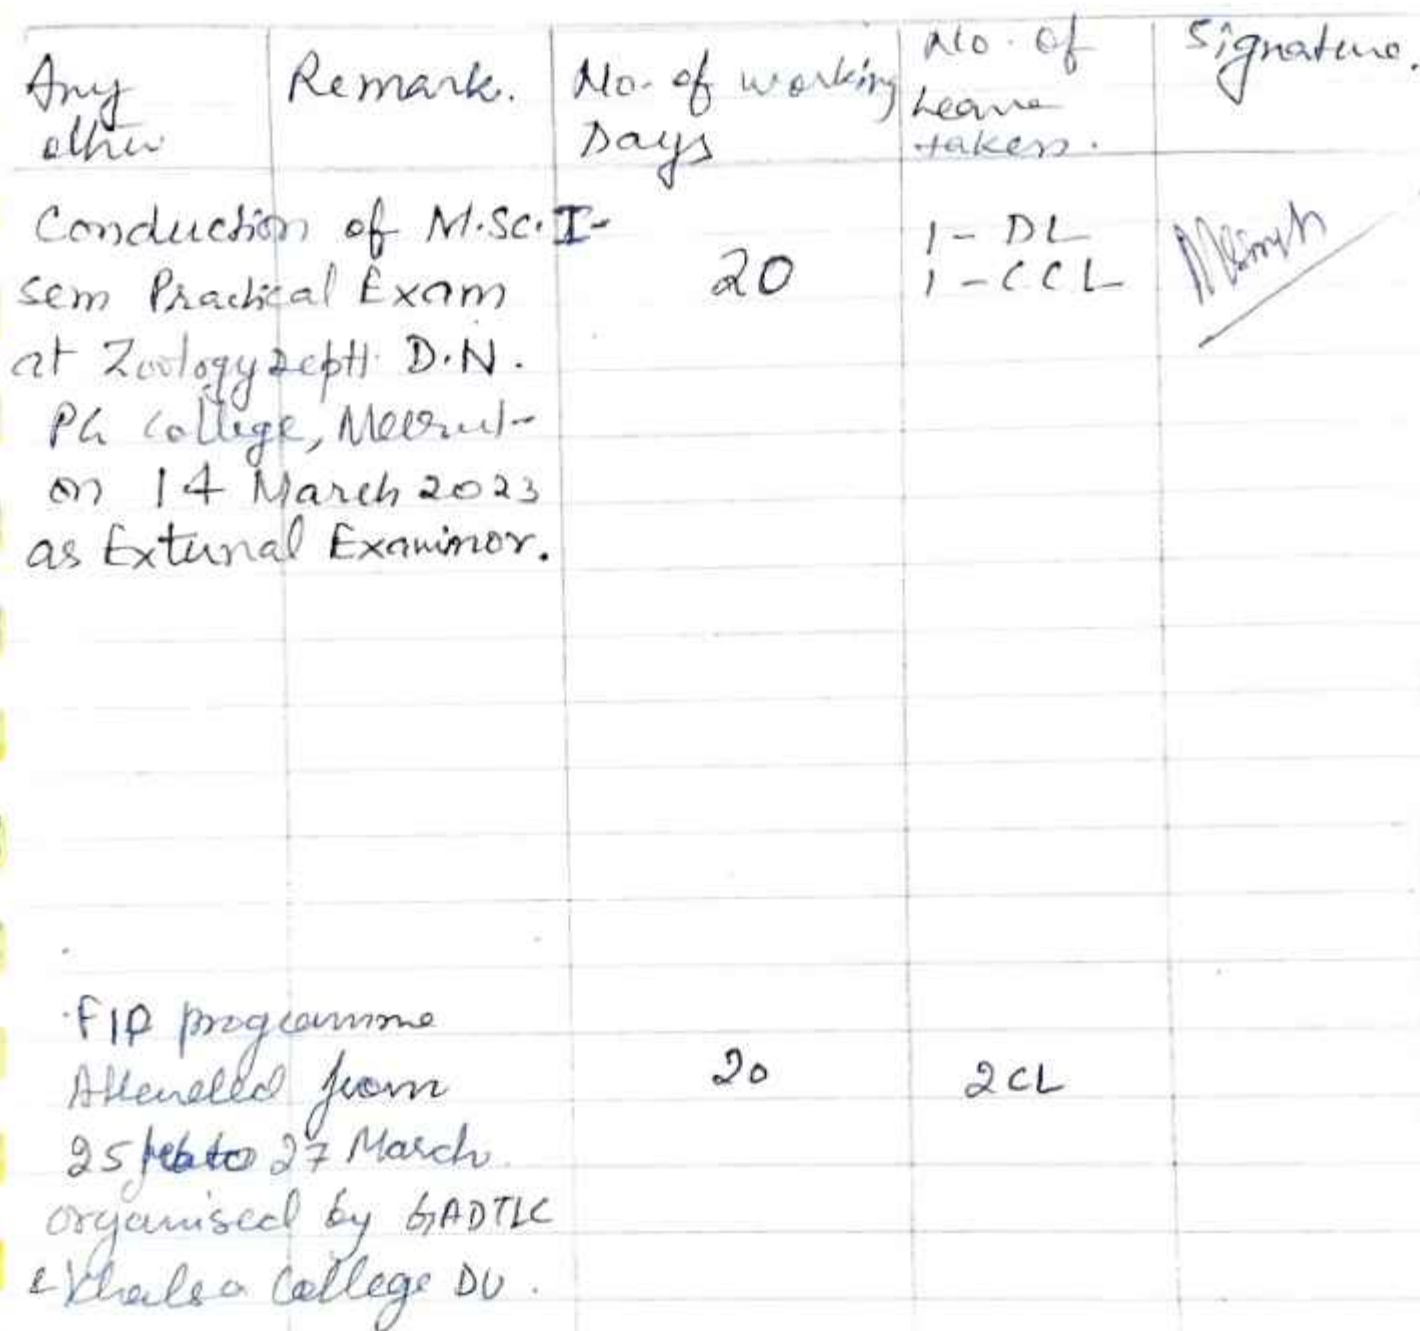 Any other
Remark.
No. of working Days
No. of Leave taken.
Signature.
Conduction of M.Sc. I-
sem Practical Exam
at Zoology Deptt. D.N.
PG College, Meerut
on 14 March 2023
as External Examinor.
20
1 - DL
1 - CCL
FIP programme
Attended from
25 to 27 March
organised by GADTLC
& Khalsa College DU.
20
2 CL